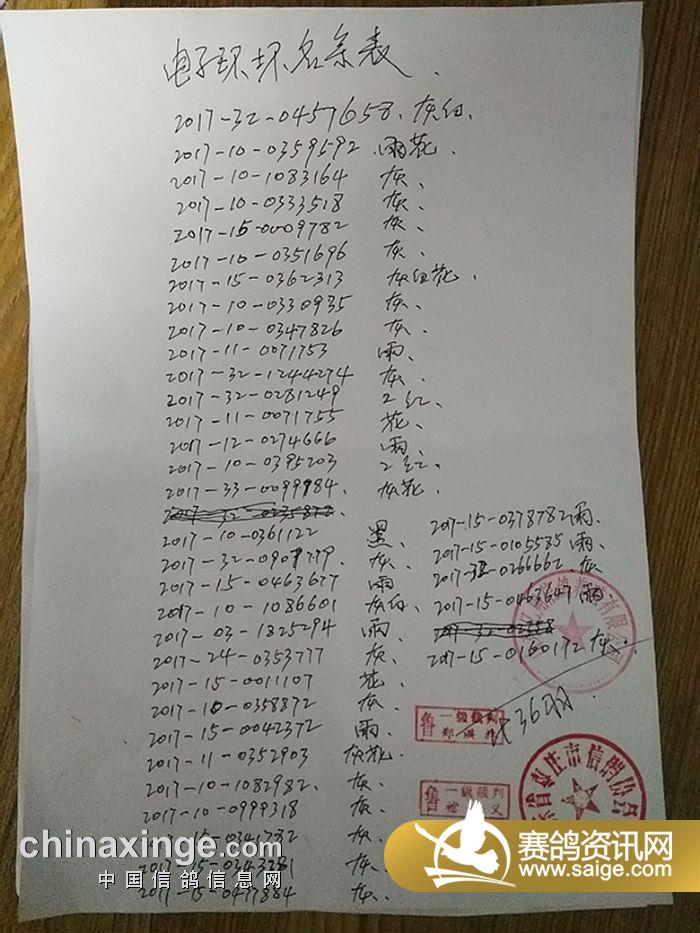 电子环坏名条表
2017-32-0457658、灰白
2017-10-0359592 雨花、
2017-10-1083164 灰、
2017-10-0333518 灰、
2017-15-0009782 灰、
2017-10-0351696 灰、
2017-15-0362313 灰白花、
2017-10-0330935 灰、
2017-10-0347826 灰、
2017-11-0071753 雨、
2017-32-1244274 灰、
2017-32-0281249 2红、
2017-11-0071755 花、
2017-12-0274666 雨、
2017-10-0395203 2红、
2017-33-0099984、灰花、
2017-10-0361122 黑、
2017-32-0909779、灰、
2017-15-0463677 雨
2017-10-1086601 灰白、
2017-03-1825294 雨、
2017-24-0353777 灰、
2017-15-0011107 花、
2017-10-0358872 灰、
2017-15-0042372 雨、
2017-11-0352903 灰花、
2017-10-1082982、灰、
2017-10-0999318 灰、
2017-15-0341782 灰、
2017-15-0343281 灰、
2017-15-0437884 灰、
2017-15-0378782雨、
2017-15-0105585 雨、
2017-32-0266662、灰
2017-15-0463647 雨、
2017-15-0160172 灰、
计36羽、
鲁 一级裁判
鲁 一级裁判
枣庄市信鸽协会
chinaxinge.com
中国信鸽信息网
赛鸽资讯网
www.saige.com